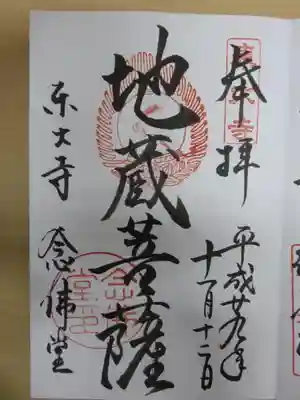 奉拝
平成廿九年
十一月十二日
地蔵菩薩
東大寺 念佛堂